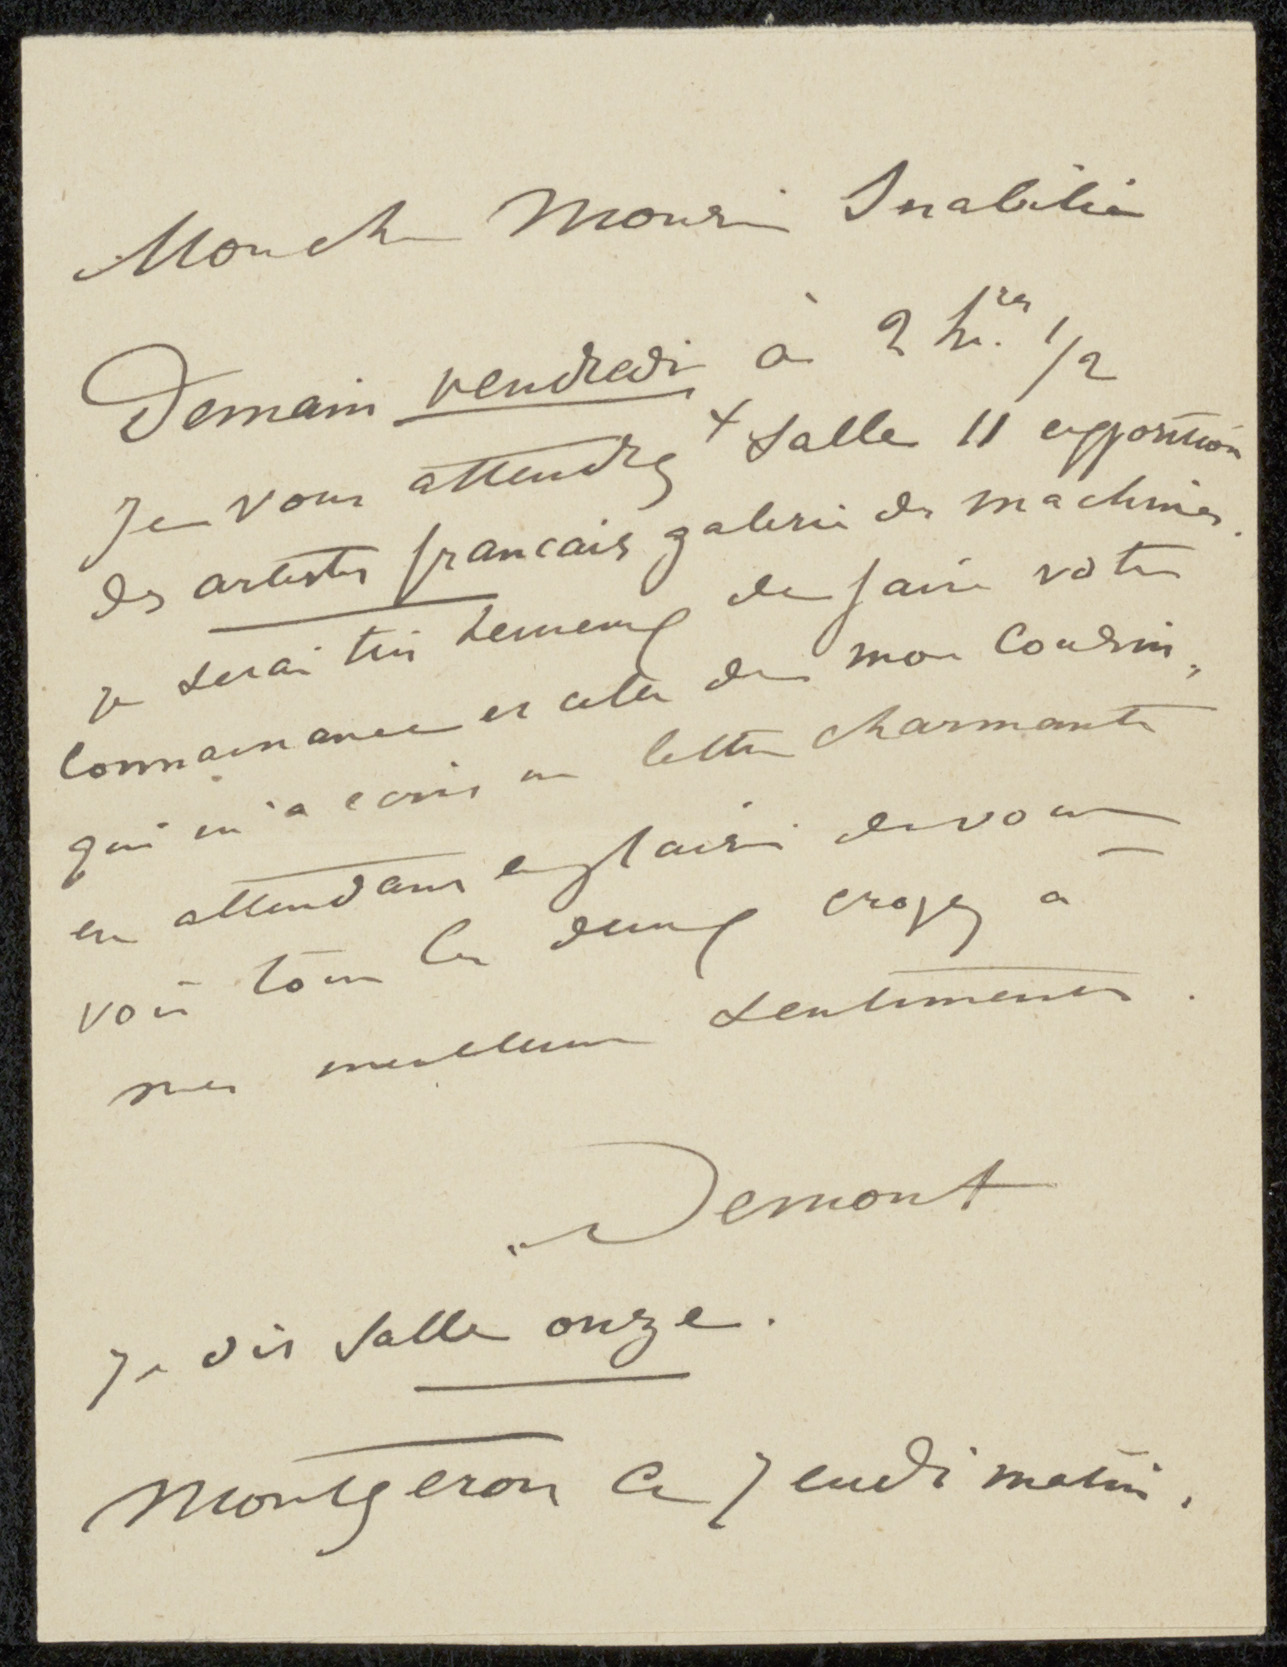 Mon cher Monsieur
Demain vendredi à 2 hres 1/2
Je vous attendrez + Salle 11 exposition
des artistes francais galerie des machines.
je serai très heureux de faire votre
connaissance et celle de mon Cousin,
qui m'a ecris une lettre charmante
en attendant le plaisir de vous
voir tous les deux croyez à
mes meilleurs sentiments.
Demont
Je dis Salle onze.
Montgeron Ce Jeudi matin.